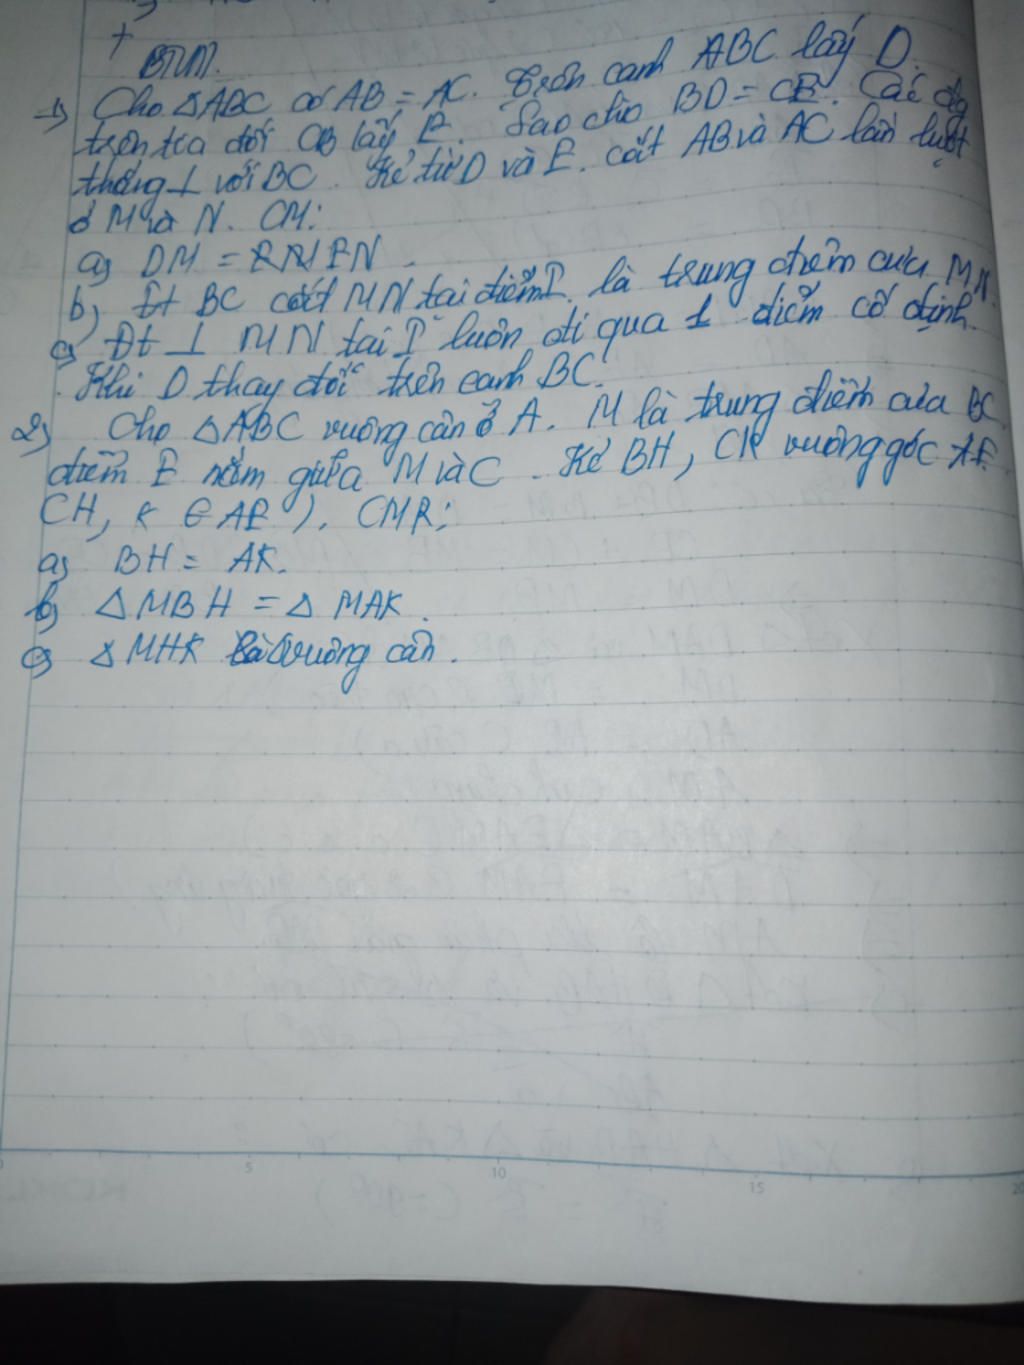 BTVN.
1) Cho △ABC có AB = AC. Trên cạnh ABC lấy D.
trên tia đối CB lấy E. Sao cho BD = CE. Các đg
thẳng ⊥ với BC. Kẻ từ D và E. cắt AB và AC lần lượt
ở M và N. CM:
a) DM = EN
b) Đt BC cắt MN tại điểm I. là trung điểm của MN.
c) Đt ⊥ MN tại I luôn đi qua 1 điểm cố định.
Khi D thay đổi trên cạnh BC.
2) Cho △ABC vuông cân ở A. M là trung điểm của BC
điểm E nằm giữa M và C. Kẻ BH, CK vuông góc AE.
CH, K ∈ AE). CMR:
a) BH = AK.
b) △MBH = △MAK.
c) △MHK vuông cân.
0 5 10 15 20